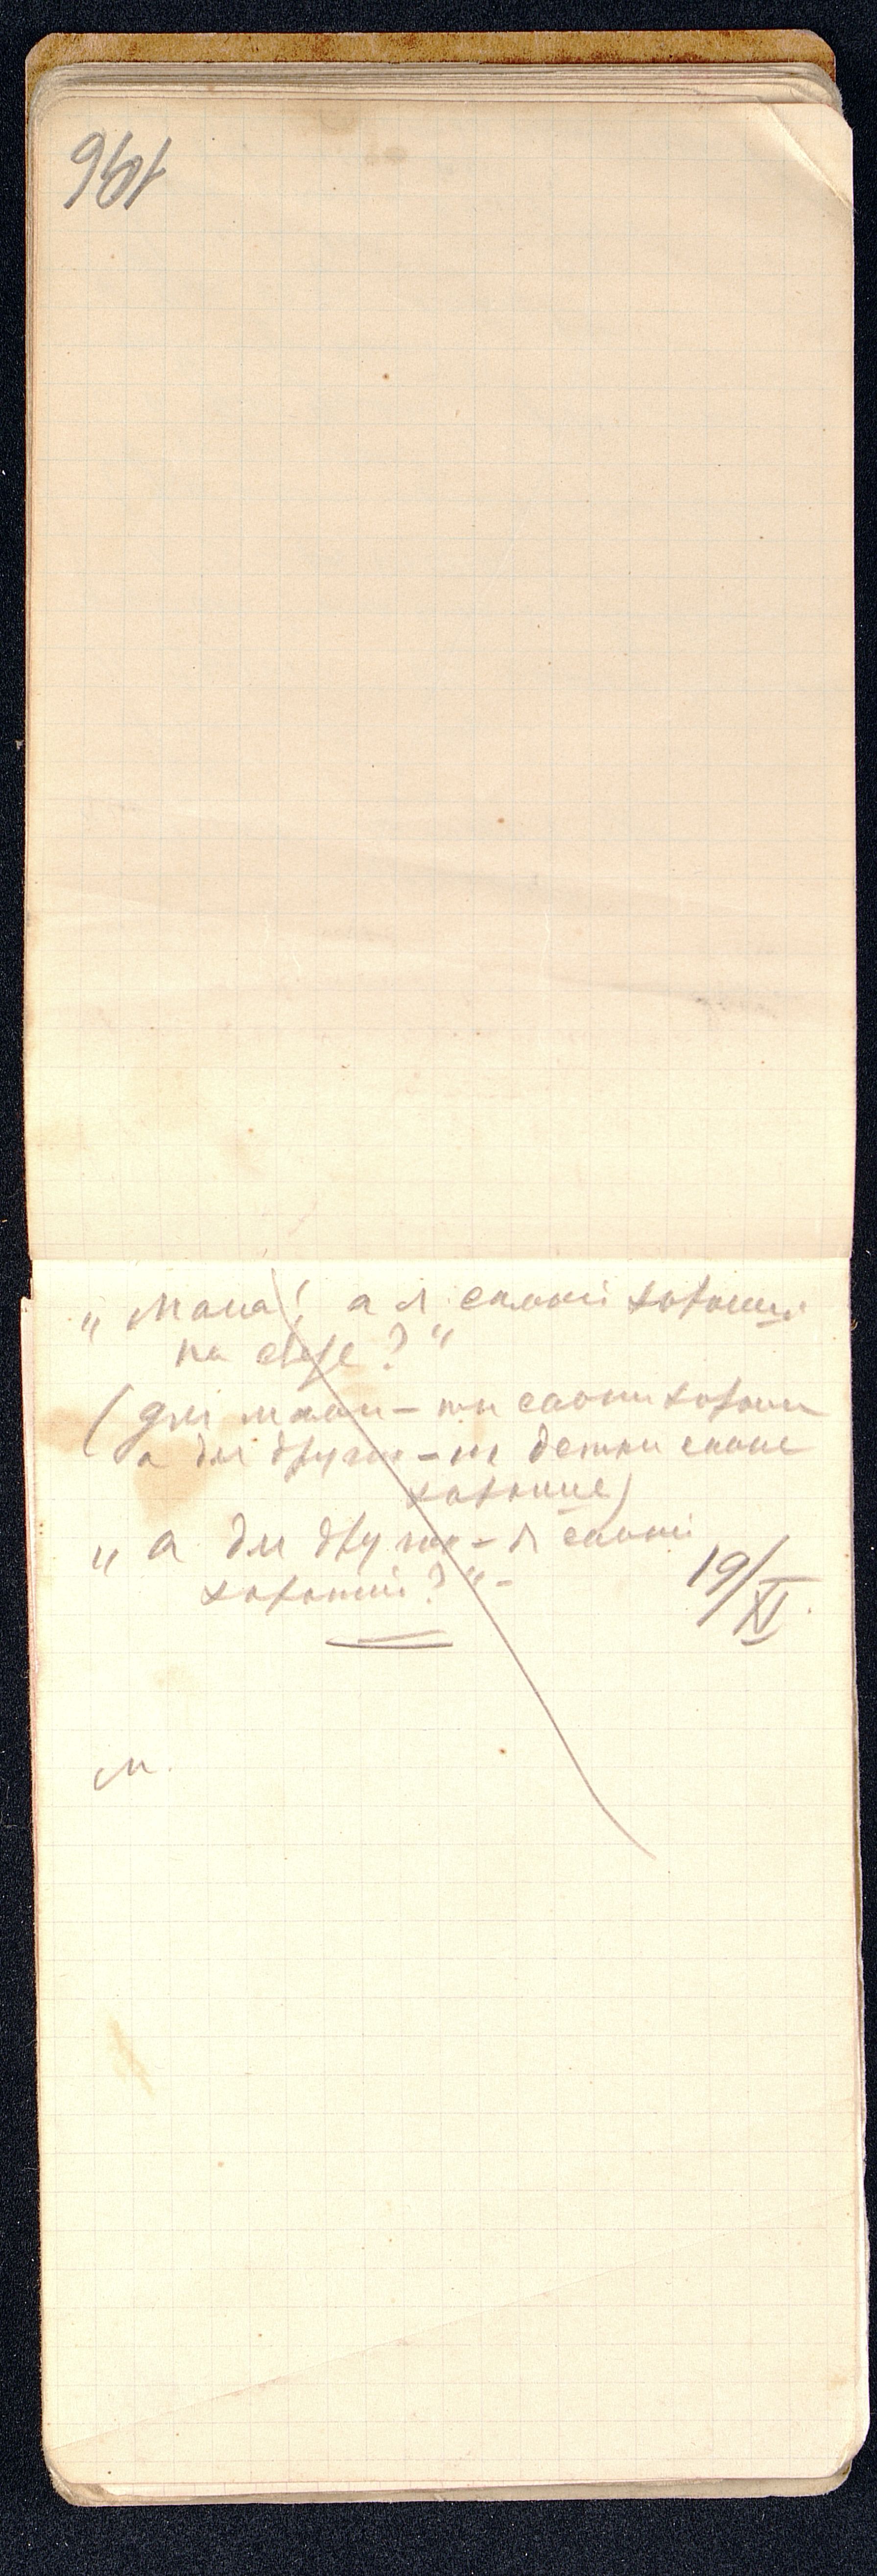 196
„Мама! а я самый хороший
на свете?“
(для мамы – ты самый хороший
а для других – их детки самые
хорошие)
„а для других – я самый
хороший?“ –
19/XI.
М.